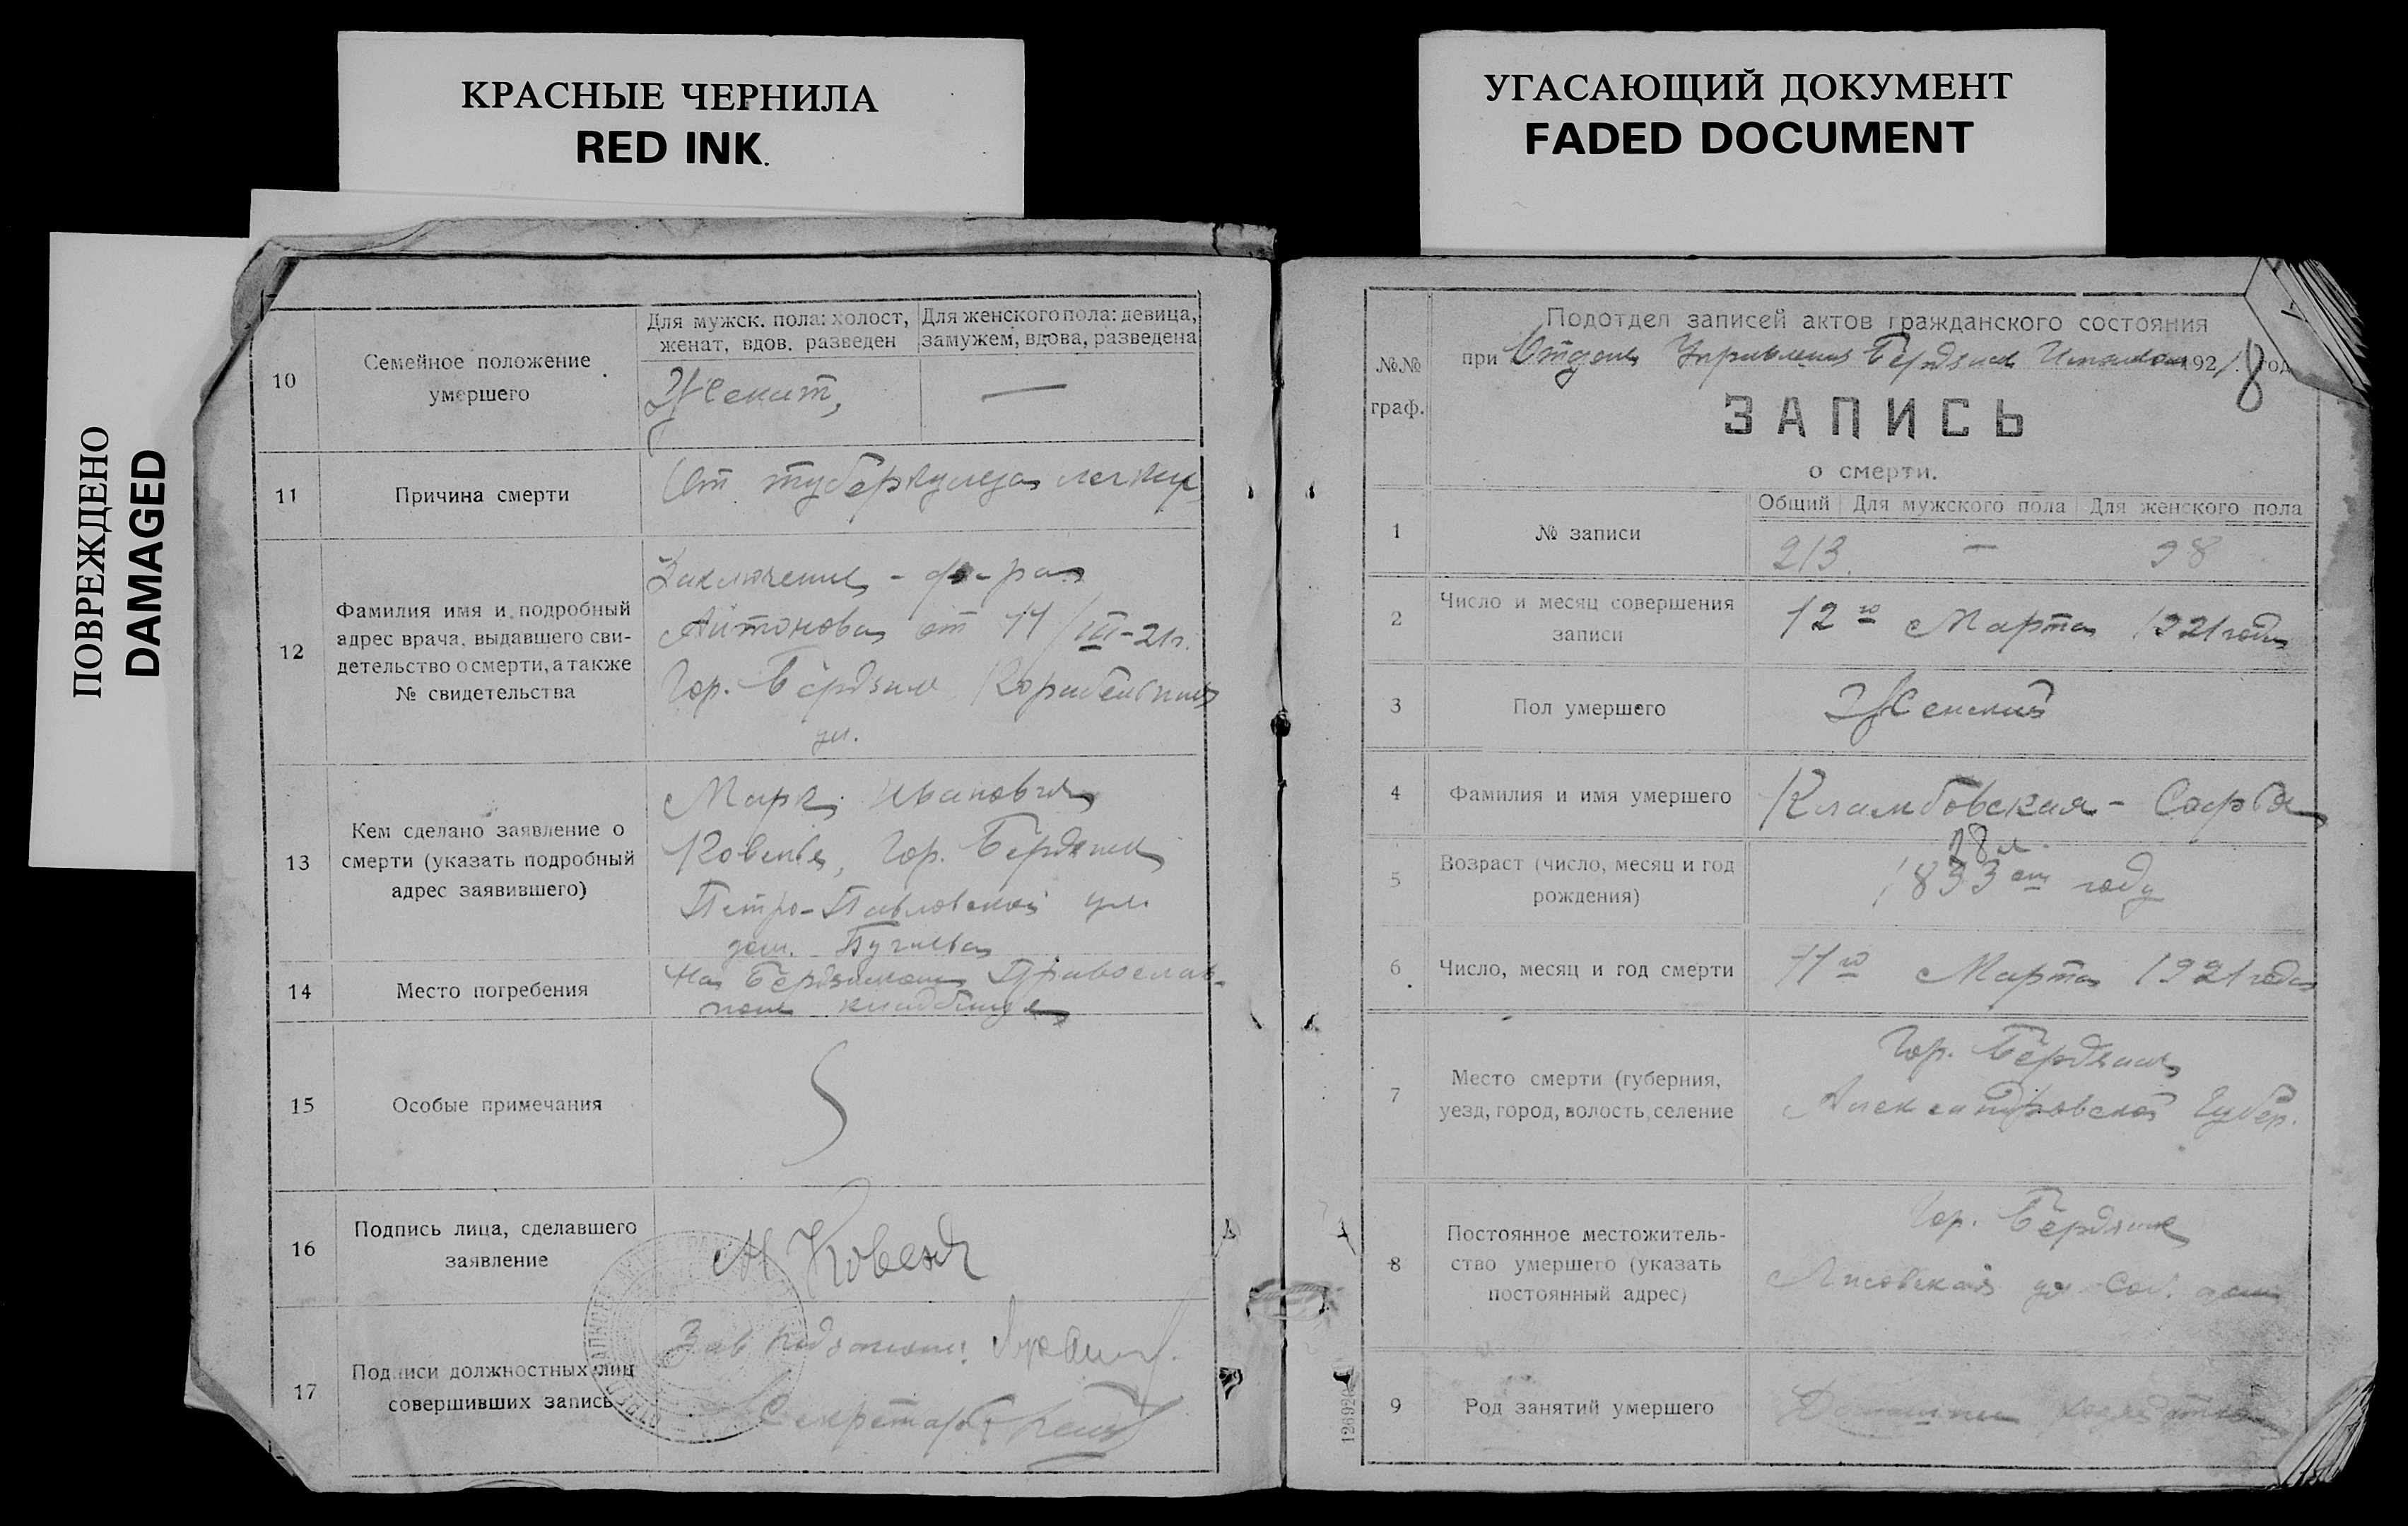 КРАСНЫЕ ЧЕРНИЛА
RED INK.
УГАСАЮЩИЙ ДОКУМЕНТ
FADED DOCUMENT
ПОВРЕЖДЕНО
DAMAGED
10
Семейное положение
умершего
Для мужск. пола: холост,
женат, вдов. разведен
Для женского пола: девица,
замужем, вдова, разведена
Женат,
—
11
Причина смерти
От туберкулеза легких
12
Фамилия имя и подробный
адрес врача, выдавшего сви-
детельство о смерти, а также
№ свидетельства
Заключение - ф-ра
Антонова от 11/III-21г.
Гор. Бердянск
ул.
13
Кем сделано заявление о
смерти (указать подробный
адрес заявившего)
Марк Иванович
Гор. Бердянск
Петро-Павловской ул.
дом.
14
Место погребения
На Бердянском Православ-
ном кладбище
15
Особые примечания
16
Подпись лица, сделавшего
заявление
М
17
Подписи должностных лиц
совершивших запись
Зав
Секретарь
№№
граф.
Подотдел записей актов гражданского состояния
при Отделе Управления Бердянск 1921 год
8
ЗАПИСЬ
о смерти.
1
№ записи
Общий
Для мужского пола
Для женского пола
213.
—
98
2
Число и месяц совершения
записи
12го Марта 1921 года
3
Пол умершего
Женский
4
Фамилия и имя умершего
Кламбовская - Софья
5
Возраст (число, месяц и год
рождения)
38 л.
1883 году
6
Число, месяц и год смерти
11го Марта 1921 года
7
Место смерти (губерния,
уезд, город, волость, селение
Гор. Бердянск
Александровской Губер.
8
Постоянное местожитель-
ство умершего (указать
постоянный адрес)
Гор. Бердянск
Соб. дом
9
Род занятий умершего
Домашнее хозяйство
12692